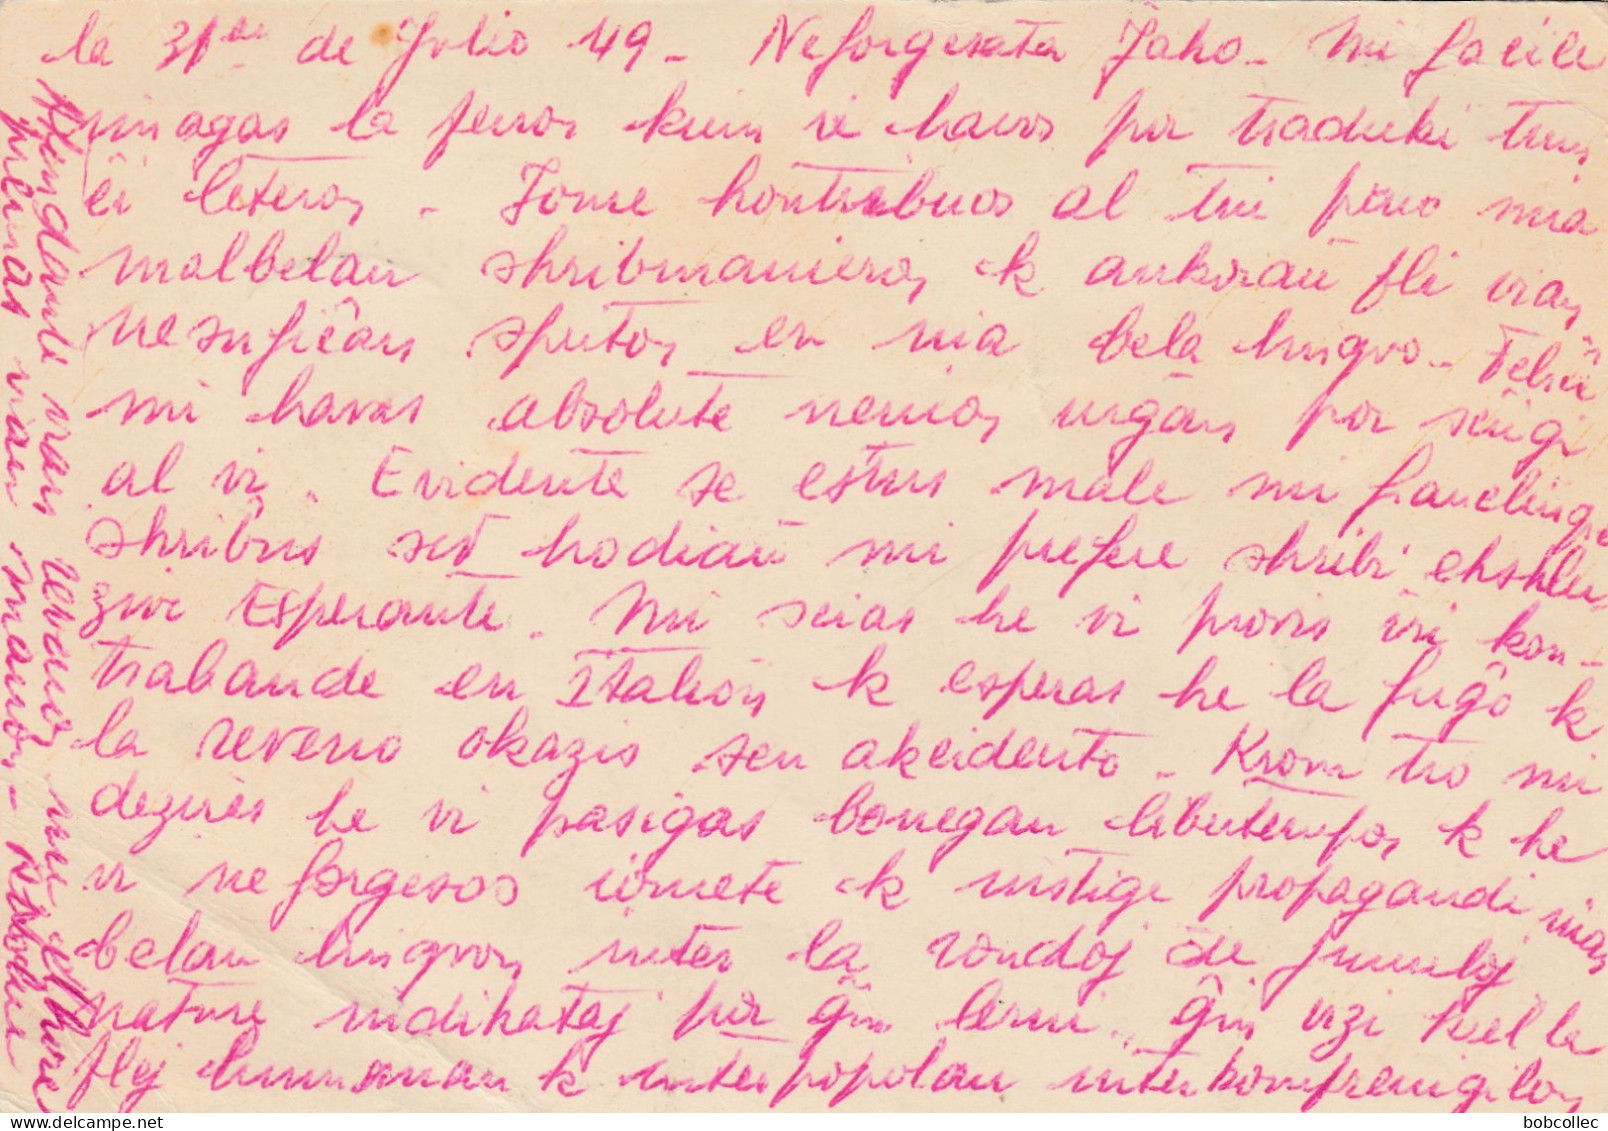 la 31an de Julio 49 - Neforgesata Jaho - Mi facile
imagas la penon kiun vi havos por traduki tiun
ĉi leteron - Iome kontribuos al tiu peno mia
malbelan skribmanieron k ankoraŭ pli vian
nesufiĉan sputon en nia bela lingvo - Feliĉe
mi havas absolute nenion urĝan por sciigi
al vi. Evidente se estus male mi franclingve
skribus sed hodiaŭ mi prefere skribi ekskluzi
zive Esperante. Mi scias ke vi provis iri kon-
trabande en Italion k esperas ke la fuĝo k
la reveno okazis sen akcidento - Krom tio mi
deziras ke vi pasigas bonegan libertempon k ke
vi ne forgesos iomete k instige propagandi nian
belan lingvon inter la rondoj de junuloj
nature indikataj por ĝin lerni, ĝin uzi kiel la
plej humanan k interpopolan interkomprenigilon
Atendante vian revenon mi elkore
premas vian manon -